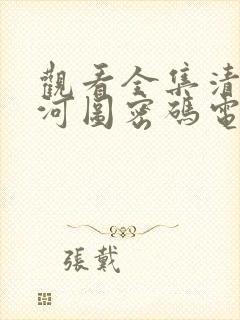 觀看全集清
河圖密碼電
張戴